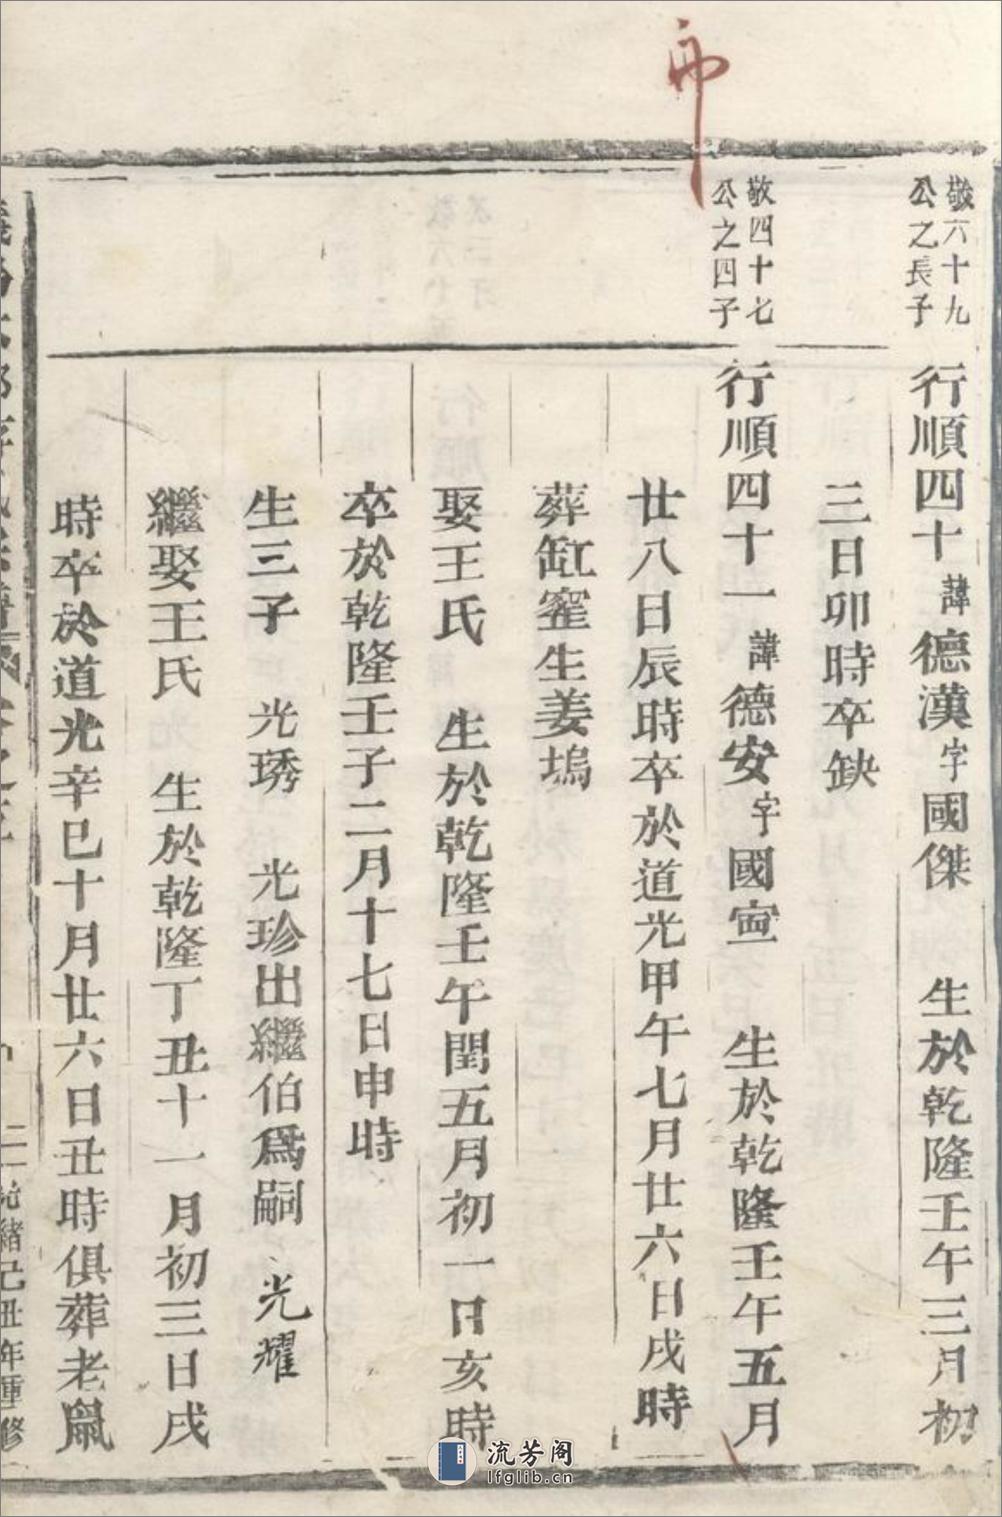 敬六十九
公之長子
行順四十諱德漢字國傑 生於乾隆壬午三月初
三日卯時卒缺
敬四十七
公之四子
行順四十一諱德安字國寍 生於乾隆壬午五月
廿八日辰時卒於道光甲午七月廿六日戌時
葬缸窰生姜塢
娶王氏 生於乾隆壬午閏五月初一日亥時
卒於乾隆壬子二月十七日申時
生三子 光琇 光珍出繼伯爲嗣 光耀
繼娶王氏 生於乾隆丁丑十一月初三日戌
時卒於道光辛巳十月廿六日丑時俱葬老鼠
光緒己丑年重修
流芳阁
lfglib.cn